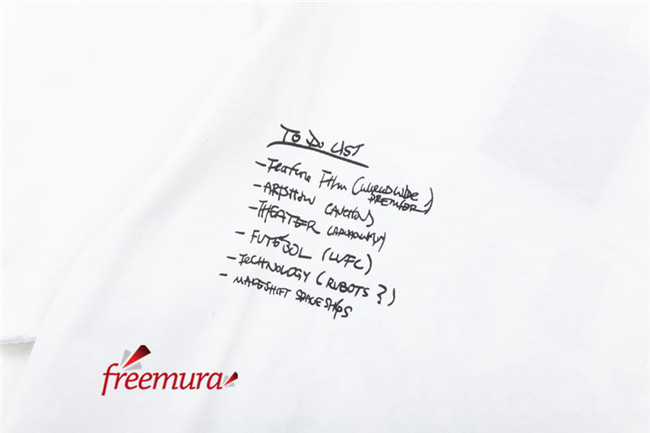 TO DO LIST
- Feature Film (WORLDWIDE PREMIER)
- ARTSHOW
- THEATER
- FUTEBOL (LVFC)
- TECHNOLOGY (ROBOTS?)
- MAKESHIFT SPACESHIPS
freemura